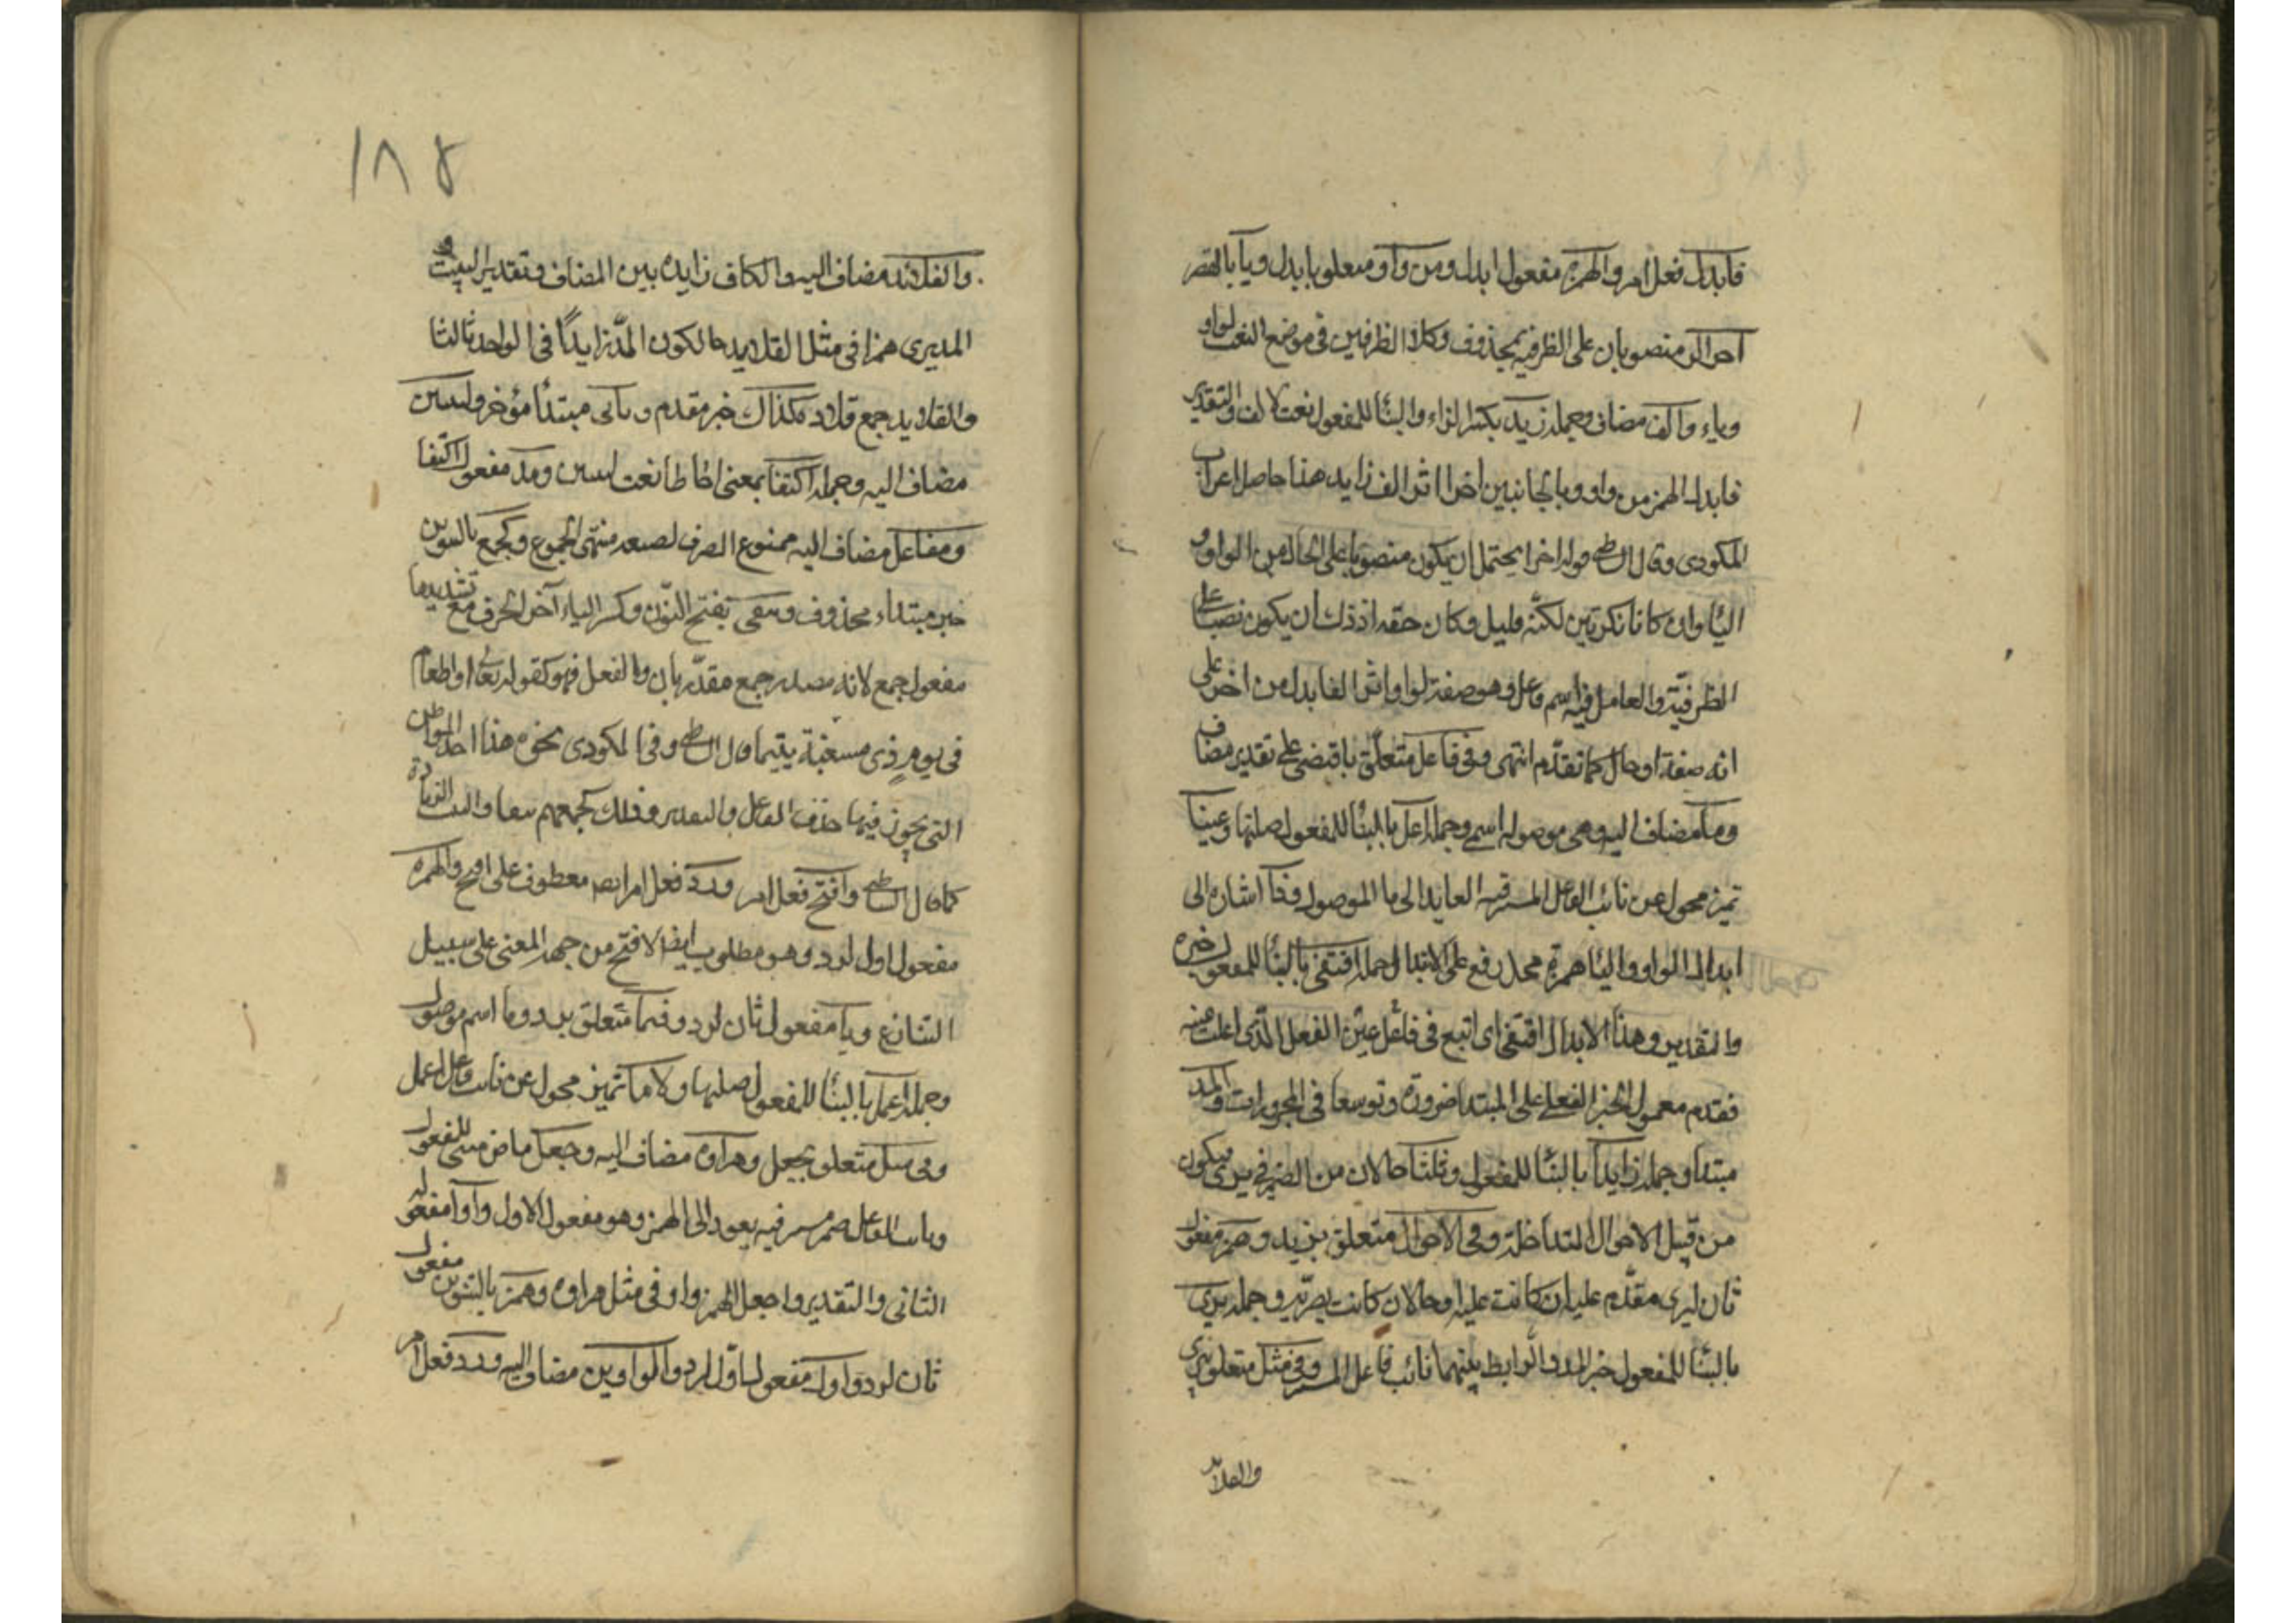 فابدل فعل امر والهمزة مفعول ابدل ومن واو متعلق بابدل ويا بالقصر
آخرا اثر منصوبان على الظرفية بمحذوف وكلا الظرفين في موضع النعت لواو
وياء والف مضاف وجملة زيد بكسر الزاء والبنا للمفعول نعت لالف والتقدير
فابدل الهمز من واو ويا كاينين آخرا اثر الف زايد هذا حاصل اعراب
المكودي وقال الشاطبي قوله اخرا يحتمل ان يكون منصوبا على الحال من الواو و
اليا وان كانا نكرتين لكنه قليل وكان حقه اذ ذلك ان يكون نصبا على
الظرفية والعامل فيه اسم فاعل وهو صفة لواو اثر الفا بدل من اخر على
انه صفة او حال كما تقدم انتهى وفي فاعل متعلق باقتفي على تقدير مضاف
وما مضاف اليه وهي موصول اسمي وجملة اعل بالبنا للمفعول صلتها وعينا
تميز محول عن نائب الفاعل المستتر فيه العايد الى ما الموصول وذا اشارة الى
ابدال الواو واليا همزة محله رفع على الابتدا وجملة اقتفي بالبنا للمفعول خبره
والتقدير وهذا الابدال اقتفي اي اتبع في فاعل عين الفعل الذي اعلت عينه
فقدم معمول الخبر الفعلي على المبتدا ضرورة وتوسعا في المجرورات والمد
مبتدا وجملة زايدا بالبنا للمفعول وثالثا حالان من الضمير في يرى فيكون
من قبيل الاحوال المتداخلة وفي الاحوال متعلق بزيد وهمز مفعول
ثان ليرى مقدم عليه ان كانت علمية او حالا ان كانت بصرية وجملة يرى
بالبنا للمفعول خبر المد والرابط بينهما نائب فاعل المستتر وفي مثل متعلق بيرى
والقلائد
١٨٨
والقلائد مضاف اليه والكاف زايدة بين المضاف وتقدير البيت و
المد يرى همزا في مثل القلايد حالكون المد زايدا في الواحد ثالثا
والقلايد جمع قلادة كذاك خبر مقدم وثاني مبتدأ مؤخر ولينين
مضاف اليه وجملة اكتنفا بمعنى احاطا نعت لينين ومد مفعول اكتنفا
ومفاعل مضاف اليه ممنوع الصرف لصيغة منتهى الجموع وكجمع بالتنوين
خبر مبتداء محذوف ونيفا بفتح النون وكسر الياء آخر الحرف مع تشديدها
مفعول جمع لانه مصدر جمع مقدر بان والفعل فهو كقوله تعالى او اطعام
في يوم ذي مسغبة يتيما قال الشاطبي وفي المكودي نحوه هذا احد المواطن
التي يجوز فيها حذف الفاعل والتقدير وذلك كجمعهم نيفا والنيف الزيادة
كما قال الشاطبي وافتح فعل امر ورد فعل امر ايضا معطوف على افتح والهمزة
مفعول اول لرد وهو مطلوب ايضا لافتح من جهة المعنى على سبيل
التنازع ويا مفعول ثان لرد وفيما متعلق برد وما اسم موصول
وجملة اعل بالبنا للمفعول صلتها ولاما تميز محول عن نائب فاعل اعل
وفي مثل متعلق بجعل وهراوة مضاف اليه وجعل ماض مبني للمفعول
ونائب الفاعل ضمير مستتر فيه يعود الى الهمز وهو مفعول الاول وواوا مفعوله
الثاني والتقدير واجعل الهمز واو في مثل هراوة وهمزا بالتنوين مفعول
ثان لرد واول مفعول اول لرد والواوين مضاف اليه ورد فعل امر